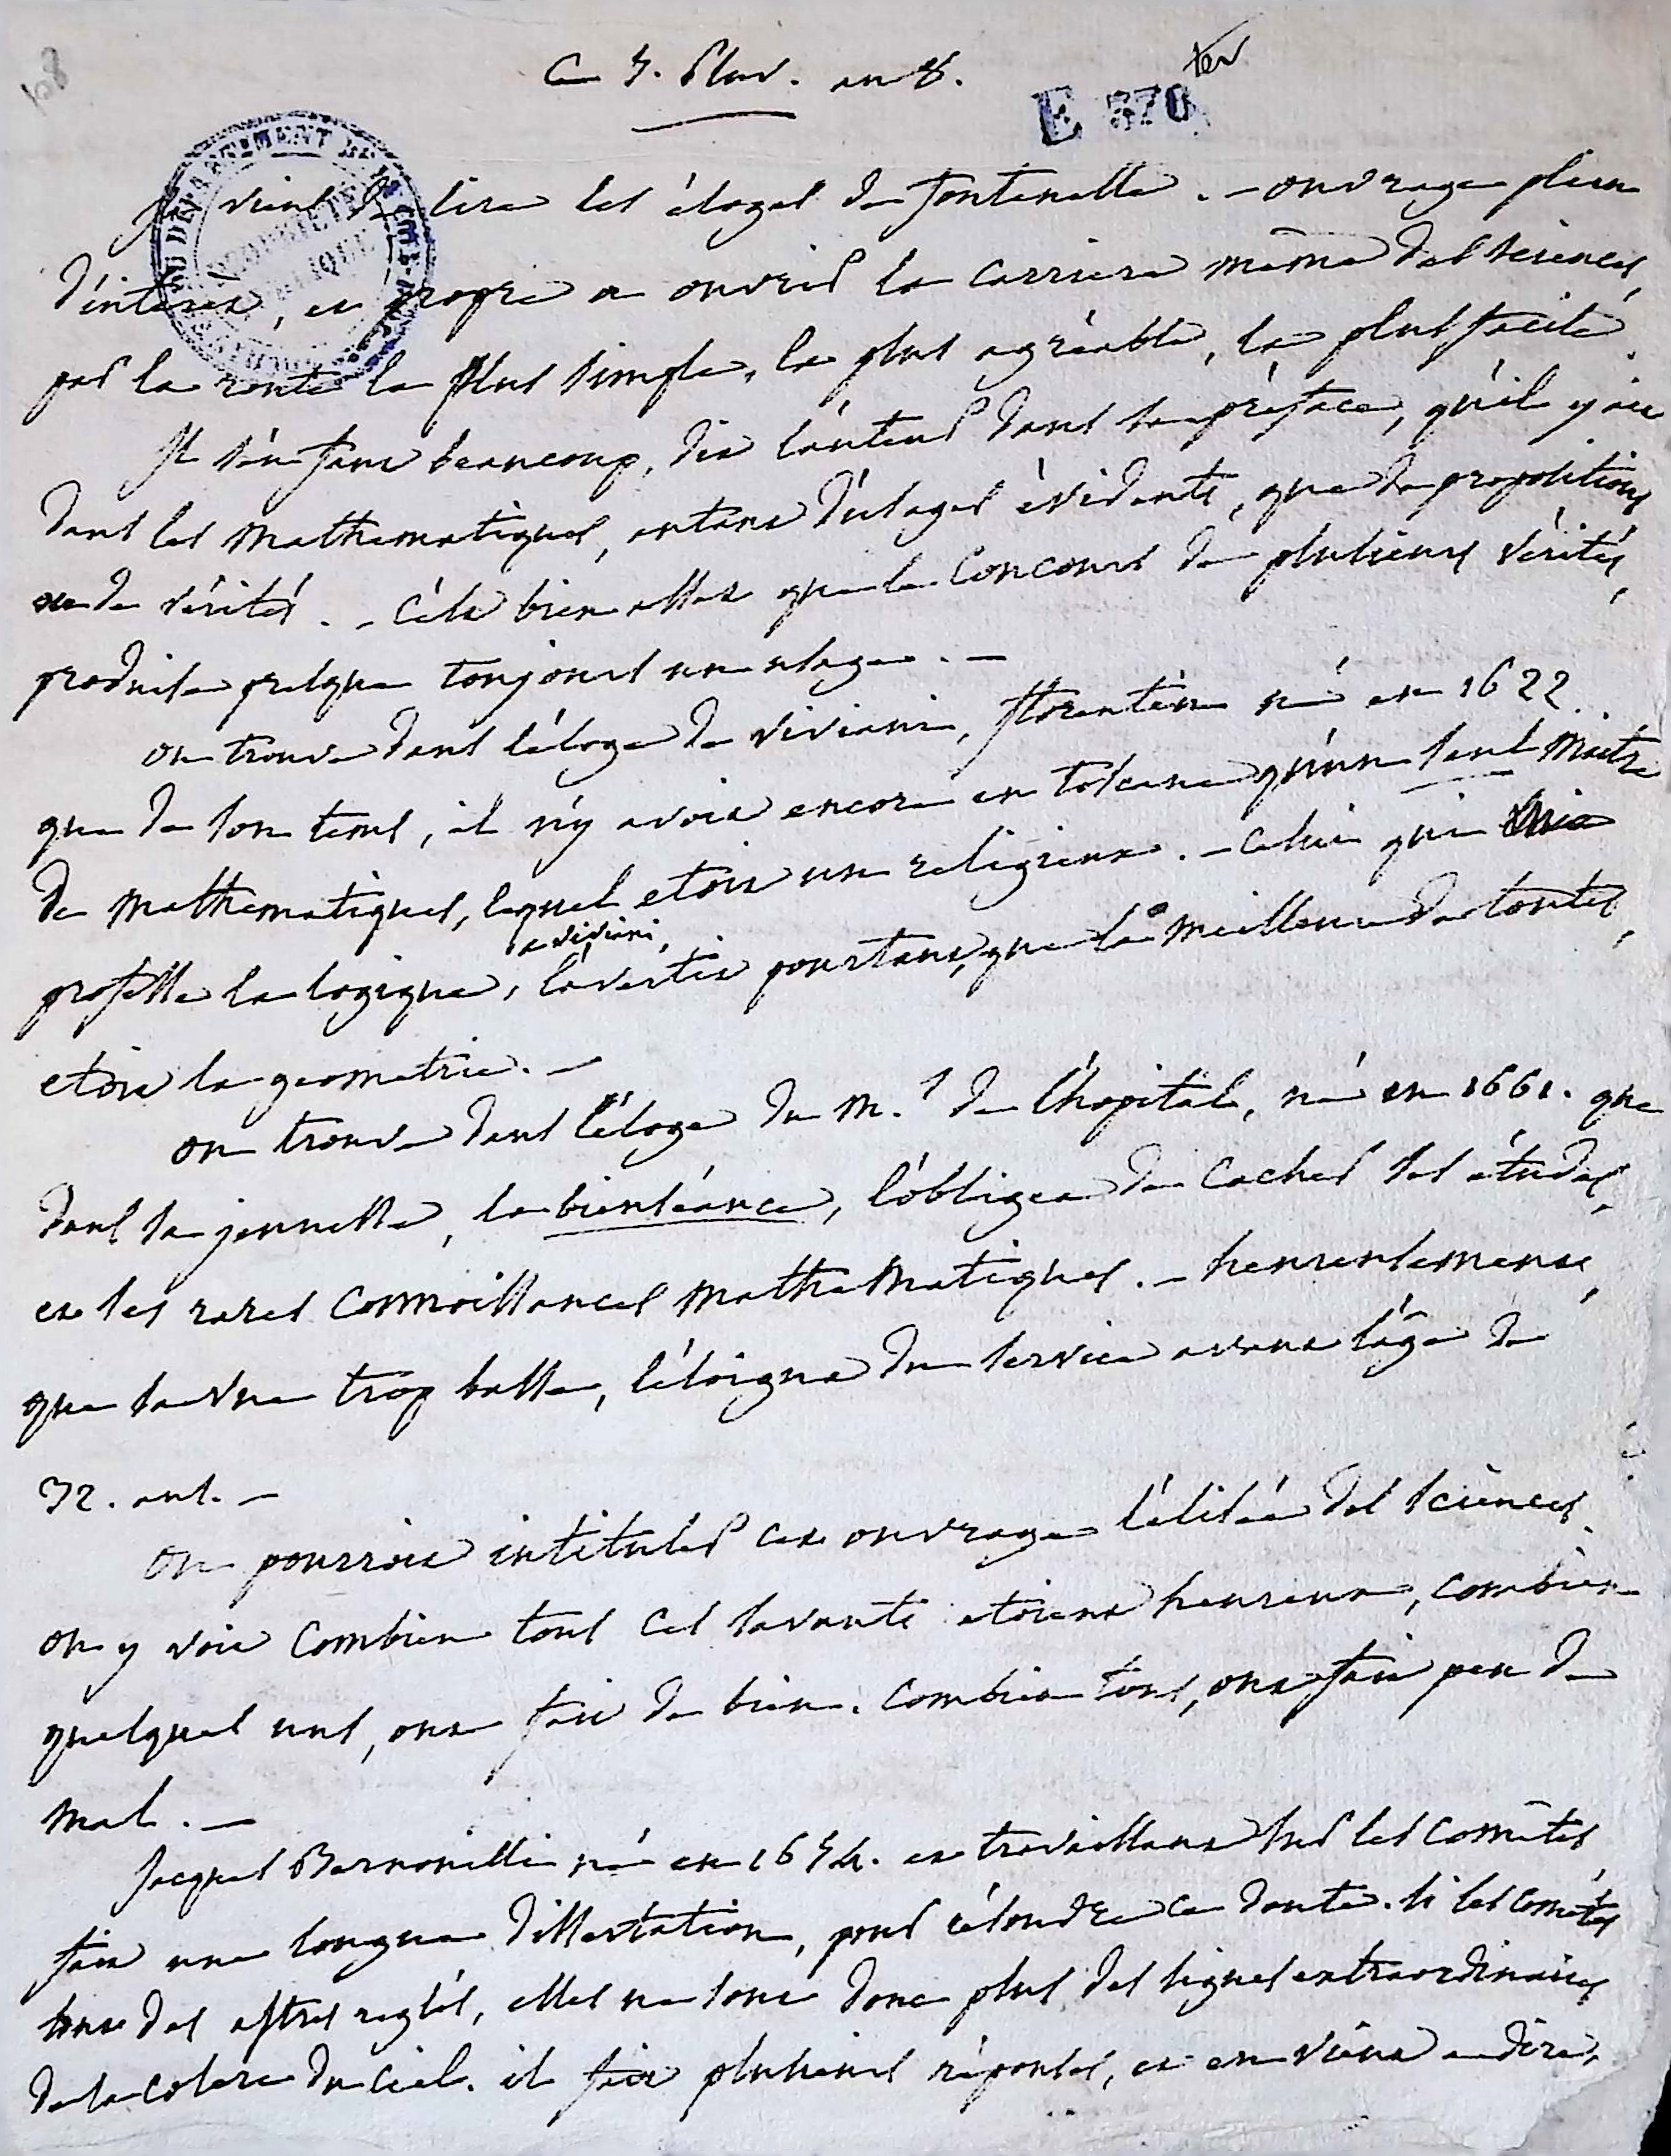 68
Ce 5. Pluv. an 8.
ter
E 370
je viens de lire les éloges de fontenelle. - ouvrage plein
d'intérêt, et propre a ouvrir la carriere même des sciences,
par la route la plus simple, la plus agréable, la plus facile.
Il s'en faut beaucoup, dit l'auteur dans sa préface, qu'il y ait
dans les mathematiques, autant d'usages évidents, que de propositions
ou de vérités. - c'est bien assez que le concours de plusieurs vérités,
produise presque toujours un usage. -
on trouve dans l'éloge de viviani, florentin né en 1622.
que de son tems, il n'y avoit encore en toscane qu'un seul maitre
de mathematiques, lequel etoit un religieux. - celui qui
a viviani,
professe la logique, l'avertit pourtant, que la meilleure de toutes,
etoit la geometrie. -
on trouve dans l'éloge du M.s de l'hopital, né en 1661. que
dans sa jeunesse, la bienséance, l'obligea de cacher ses études,
et ses rares connoissances mathematiques. - heureusement,
que sa vue trop basse, l'éloigna du service avant l'âge de
32. ans. -
on pourroit intituler cet ouvrage l'élisée des sciences.
on y voit combien tous ces savants etoient heureux, combien
quelques uns, ont fait de bien. combien tous, ont fait peu de
mal. -
Jacques Bernouilli né en 1654. et travaillant sur les comêtes,
fait une longue dissertation, pour résoudre ce doute. si les comêtes
sont des astres reglés, elles ne sont donc plus des signes extraordinaires
de la colere du ciel. il fait plusieurs réponses, et en vient a dire,